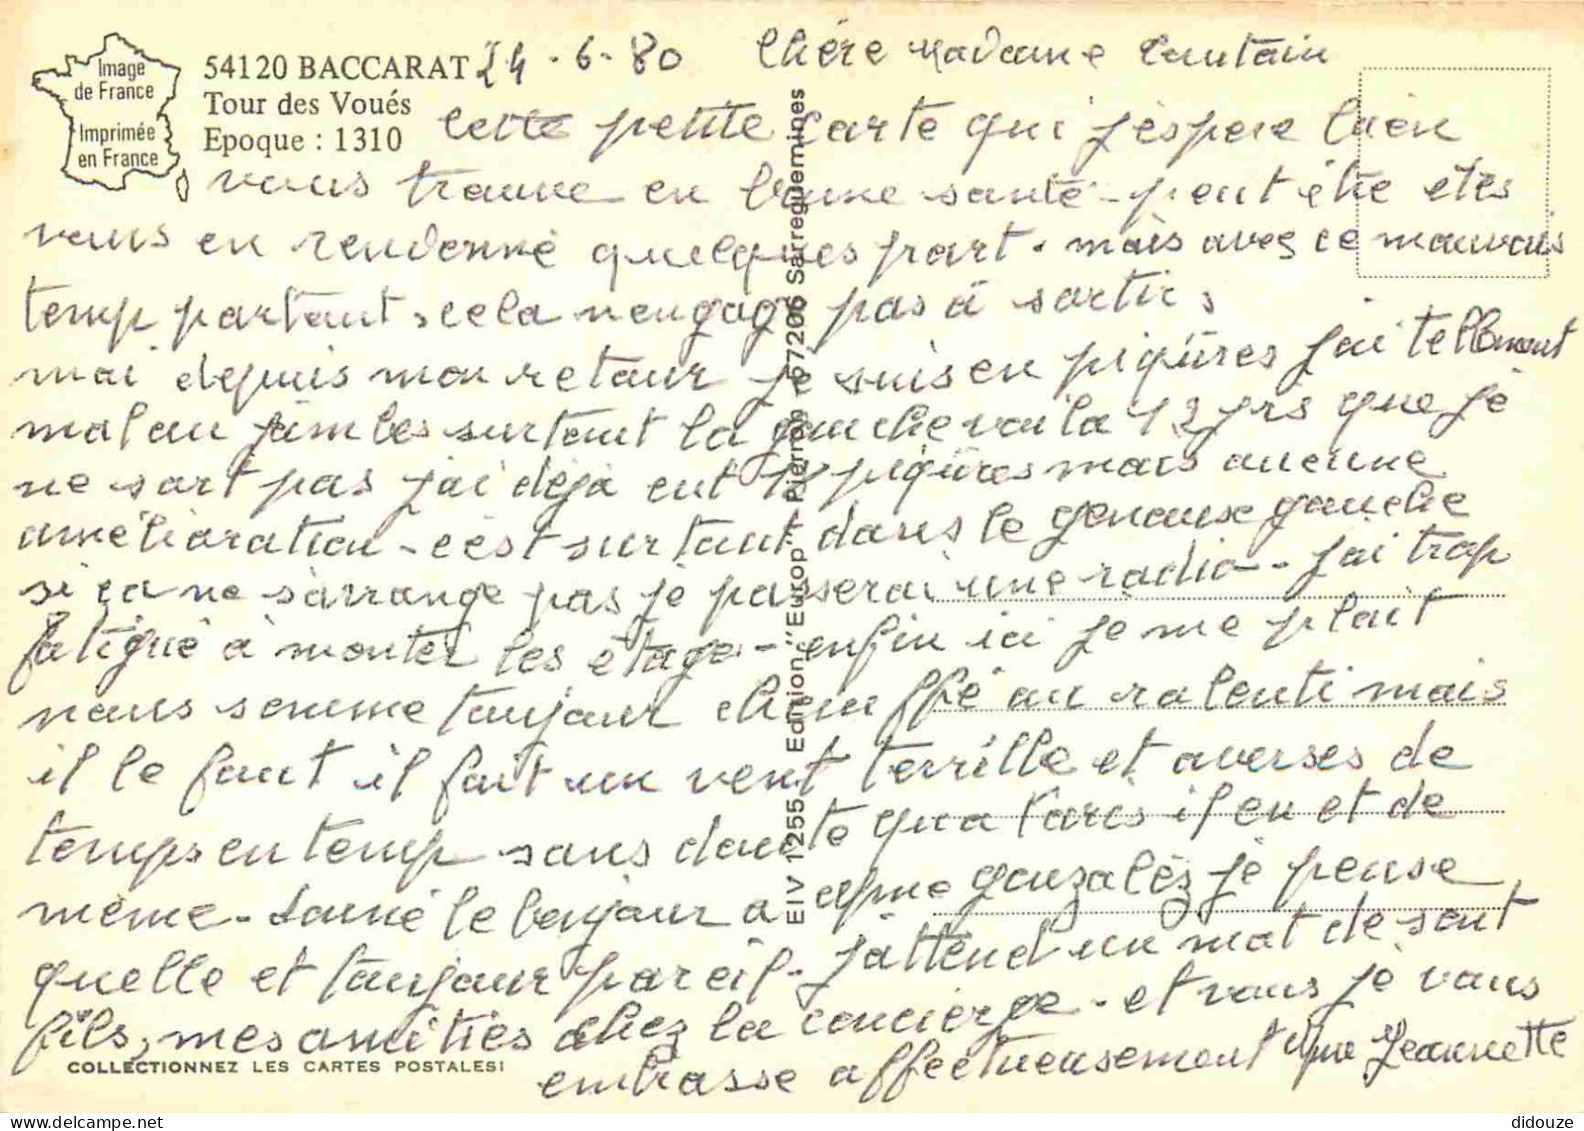 Image
de France
Imprimée
en France
54120 BACCARAT
Tour des Voués
Epoque : 1310
24-6-80 Chére Madame
cette petite carte qui j'espere bien
vous trouve en bonne santé - peut être etes
vous en rendenné quelques part. mais avec ce mauvais
temp partout, cela n'engage pas à sortir,
moi depuis mon retour je suis en piqûres j'ai tellement
mal au jambes surtout la gauche voila 12 jrs que je
ne sort pas j'ai déjà eut 12 piqûres mais aucune
amélioration - c'est surtout dans le genoux gauche
si ça ne s'arrange pas je passerai une radio - j'ai trop
fatigué à monter les étage - enfin ici je me plait
nous somme toujour chauffé au ralenti mais
il le faut il fait un vent terrille et averses de
temps en temp sans doute qu'a Paris il en et de
même - le bonjour a Mme gonzalès je pense
quelle et toujour pareil - j'attend un mot de sont
fils, mes amitiés chez la concierge - et vous je vous
embrasse affectueusement Mme Jeannette
EIV 1255 Edition "Europ" - Pierron - 57206 Sarreguemines
COLLECTIONNEZ LES CARTES POSTALES!
didouze